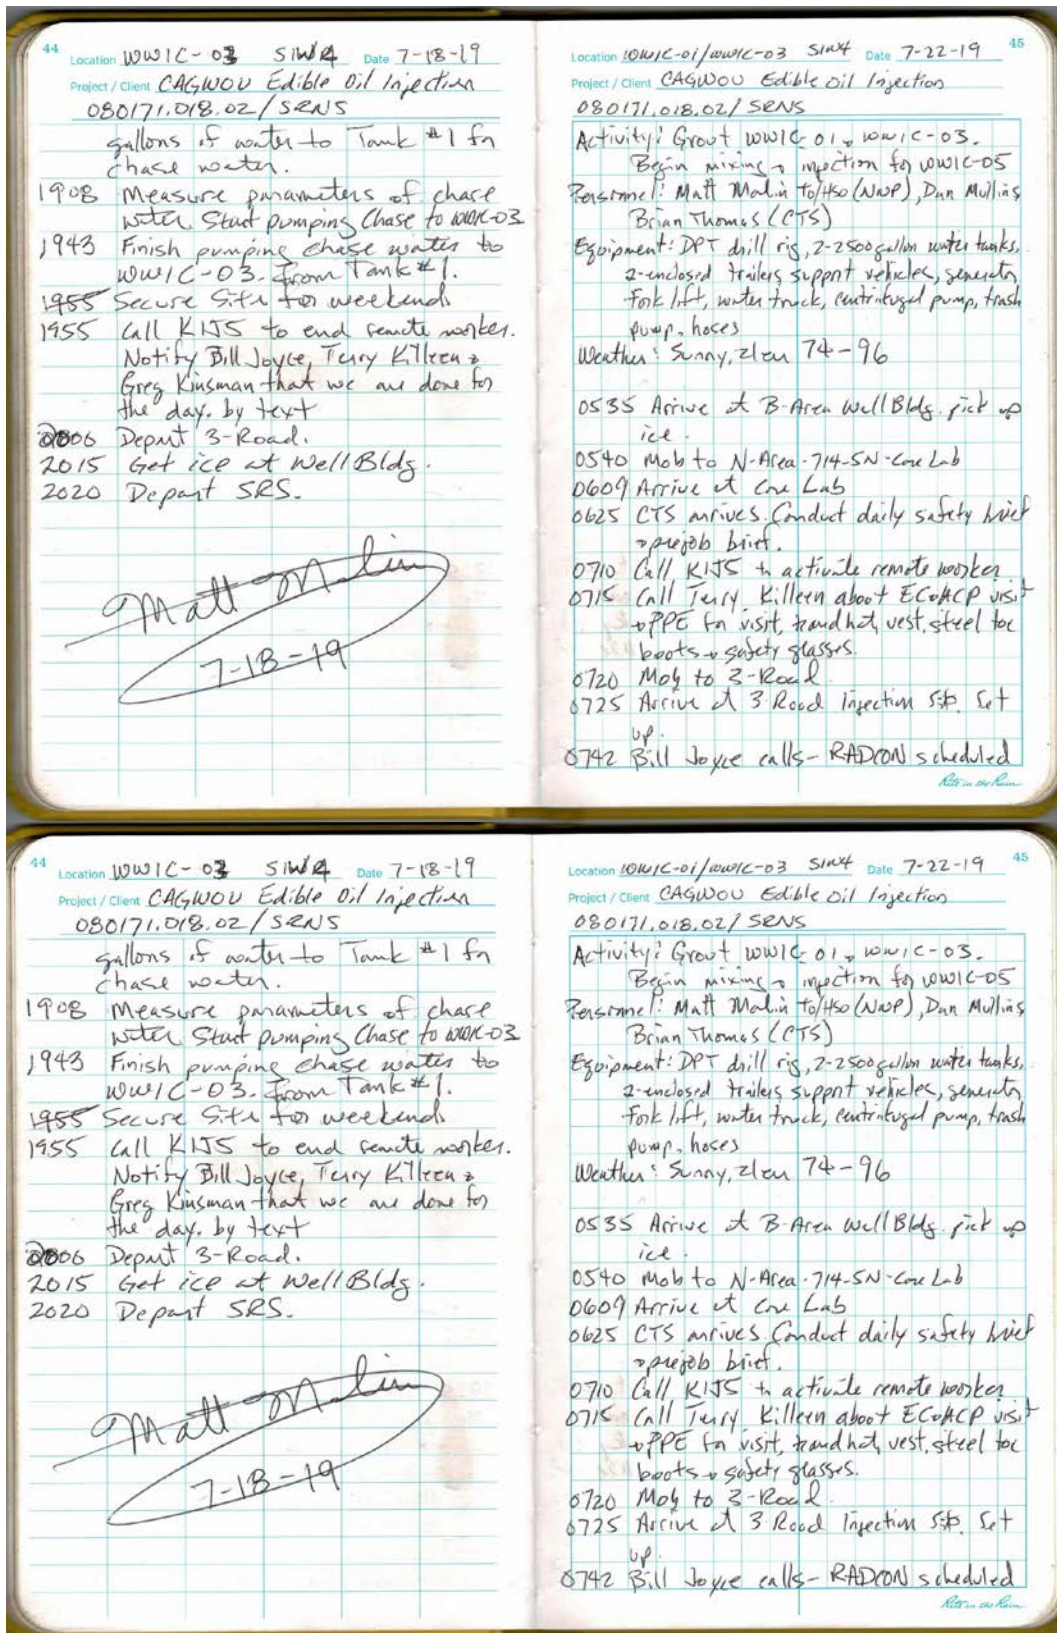 44
Location WW1C-03 SIW4 Date 7-18-19
Project / Client CAGWOU Edible Oil Injection
080171.018.02/SRNS
gallons of water to Tank #1 for
chase water.
1908 Measure parameters of chase
water. Start pumping Chase to WW1C-03
1943 Finish pumping chase water to
WW1C-03. From Tank #1.
1955 Secure Site for weekend.
1955 Call K1J5 to end remote worker.
Notify Bill Joyce, Terry Killeen &
Greg Kinsman that we are done for
the day. by text
2006 Depart 3-Road.
2015 Get ice at Well Bldg.
2020 Depart SRS.
Matt Malin
7-18-19
45
Location WW1C-01/WW1C-03 SIW4 Date 7-22-19
Project / Client CAGWOU Edible Oil Injection
080171.018.02/SRNS
Activity: Grout WW1C-01 & WW1C-03.
Begin mixing & injection for WW1C-05
Personnel: Matt Malin TO/HSO (NWP), Dan Mullins
Brian Thomas (CTS)
Equipment: DPT drill rig, 2-2500 gallon water tanks,
2-enclosed trailers support vehicles, generator,
Fork lift, water truck, centrifugal pump, trash
pump, hoses
Weather: Sunny, clear 74-96
0535 Arrive at B-Area Well Bldg. pick up
ice.
0540 Mob to N-Area-714-5N-Core Lab
0609 Arrive at Core Lab
0625 CTS arrives. Conduct daily safety brief
& prejob brief.
0710 Call K1J5 to activate remote worker
0715 Call Terry Killeen about ECOACP visit
& PPE for visit, hard hat, vest, steel toe
boots & safety glasses.
0720 Mob to 3-Road.
0725 Arrive at 3 Road Injection Site. Set
up.
0742 Bill Joyce calls - RADCON scheduled
Rite in the Rain
44
Location WW1C-03 SIW4 Date 7-18-19
Project / Client CAGWOU Edible Oil Injection
080171.018.02/SRNS
gallons of water to Tank #1 for
chase water.
1908 Measure parameters of chase
water. Start pumping Chase to WW1C-03
1943 Finish pumping chase water to
WW1C-03. From Tank #1.
1955 Secure Site for weekend.
1955 Call K1J5 to end remote worker.
Notify Bill Joyce, Terry Killeen &
Greg Kinsman that we are done for
the day. by text
2006 Depart 3-Road.
2015 Get ice at Well Bldg.
2020 Depart SRS.
Matt Malin
7-18-19
45
Location WW1C-01/WW1C-03 SIW4 Date 7-22-19
Project / Client CAGWOU Edible Oil Injection
080171.018.02/SRNS
Activity: Grout WW1C-01 & WW1C-03.
Begin mixing & injection for WW1C-05
Personnel: Matt Malin TO/HSO (NWP), Dan Mullins
Brian Thomas (CTS)
Equipment: DPT drill rig, 2-2500 gallon water tanks,
2-enclosed trailers support vehicles, generator,
Fork lift, water truck, centrifugal pump, trash
pump, hoses
Weather: Sunny, clear 74-96
0535 Arrive at B-Area Well Bldg. pick up
ice.
0540 Mob to N-Area-714-5N-Core Lab
0609 Arrive at Core Lab
0625 CTS arrives. Conduct daily safety brief
& prejob brief.
0710 Call K1J5 to activate remote worker
0715 Call Terry Killeen about ECOACP visit
& PPE for visit, hard hat, vest, steel toe
boots & safety glasses.
0720 Mob to 3-Road.
0725 Arrive at 3 Road Injection Site. Set
up.
0742 Bill Joyce calls - RADCON scheduled
Rite in the Rain